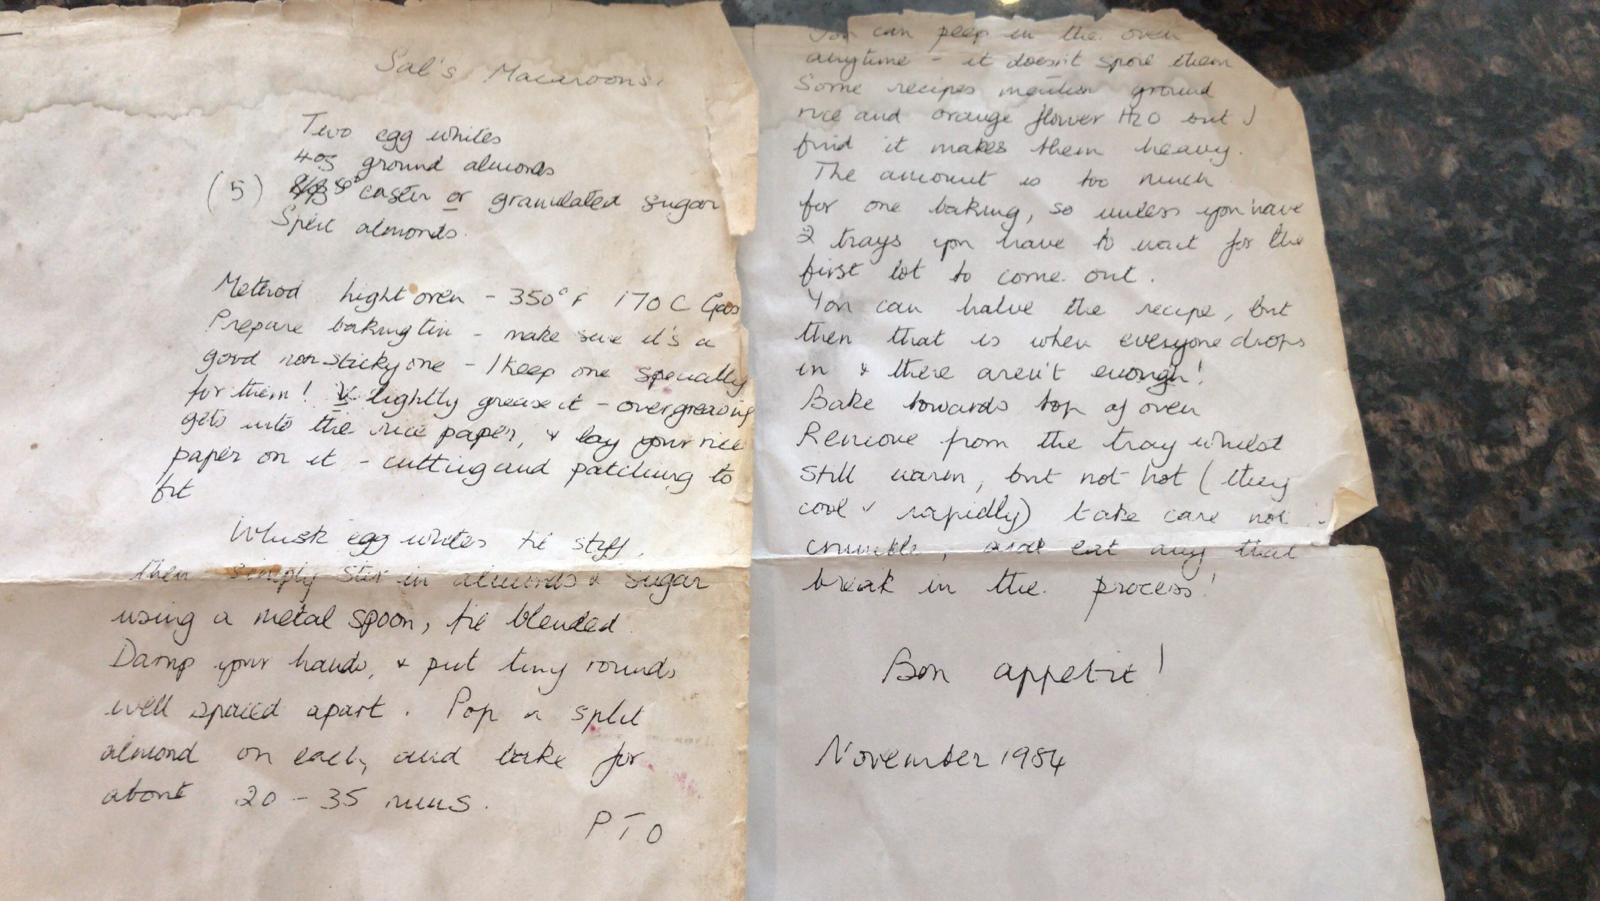 Sal's Macaroons.
Two egg whites
4oz ground almonds
(5) caster or granulated sugar
Split almonds.
Method light oven - 350°F 170C Gas
Prepare baking tin - make sure it's a
good non sticky one - I keep one specially
for them! lightly grease it - over greasing
gets into the rice paper, & lay your rice
paper on it - cutting and patching to
fit
Whisk egg whites til stiff,
then simply stir in almonds & sugar
using a metal spoon, til blended.
Damp your hands, & put tiny rounds
well spaced apart. Pop a split
almond on each, and bake for
about 20 - 35 mins.
PTO
You can peep in the oven
anytime - it doesn't spoil them
Some recipes mention ground
rice and orange flower H2O but I
find it makes them heavy.
The amount is too much
for one baking, so unless you have
2 trays you have to wait for the
first lot to come out.
You can halve the recipe, but
then that is when everyone drops
in & there aren't enough!
Bake towards top of oven
Remove from the tray whilst
still warm, but not hot (they
cool rapidly) take care not
crumble, and eat any that
break in the process!
Bon appetit!
November 1984